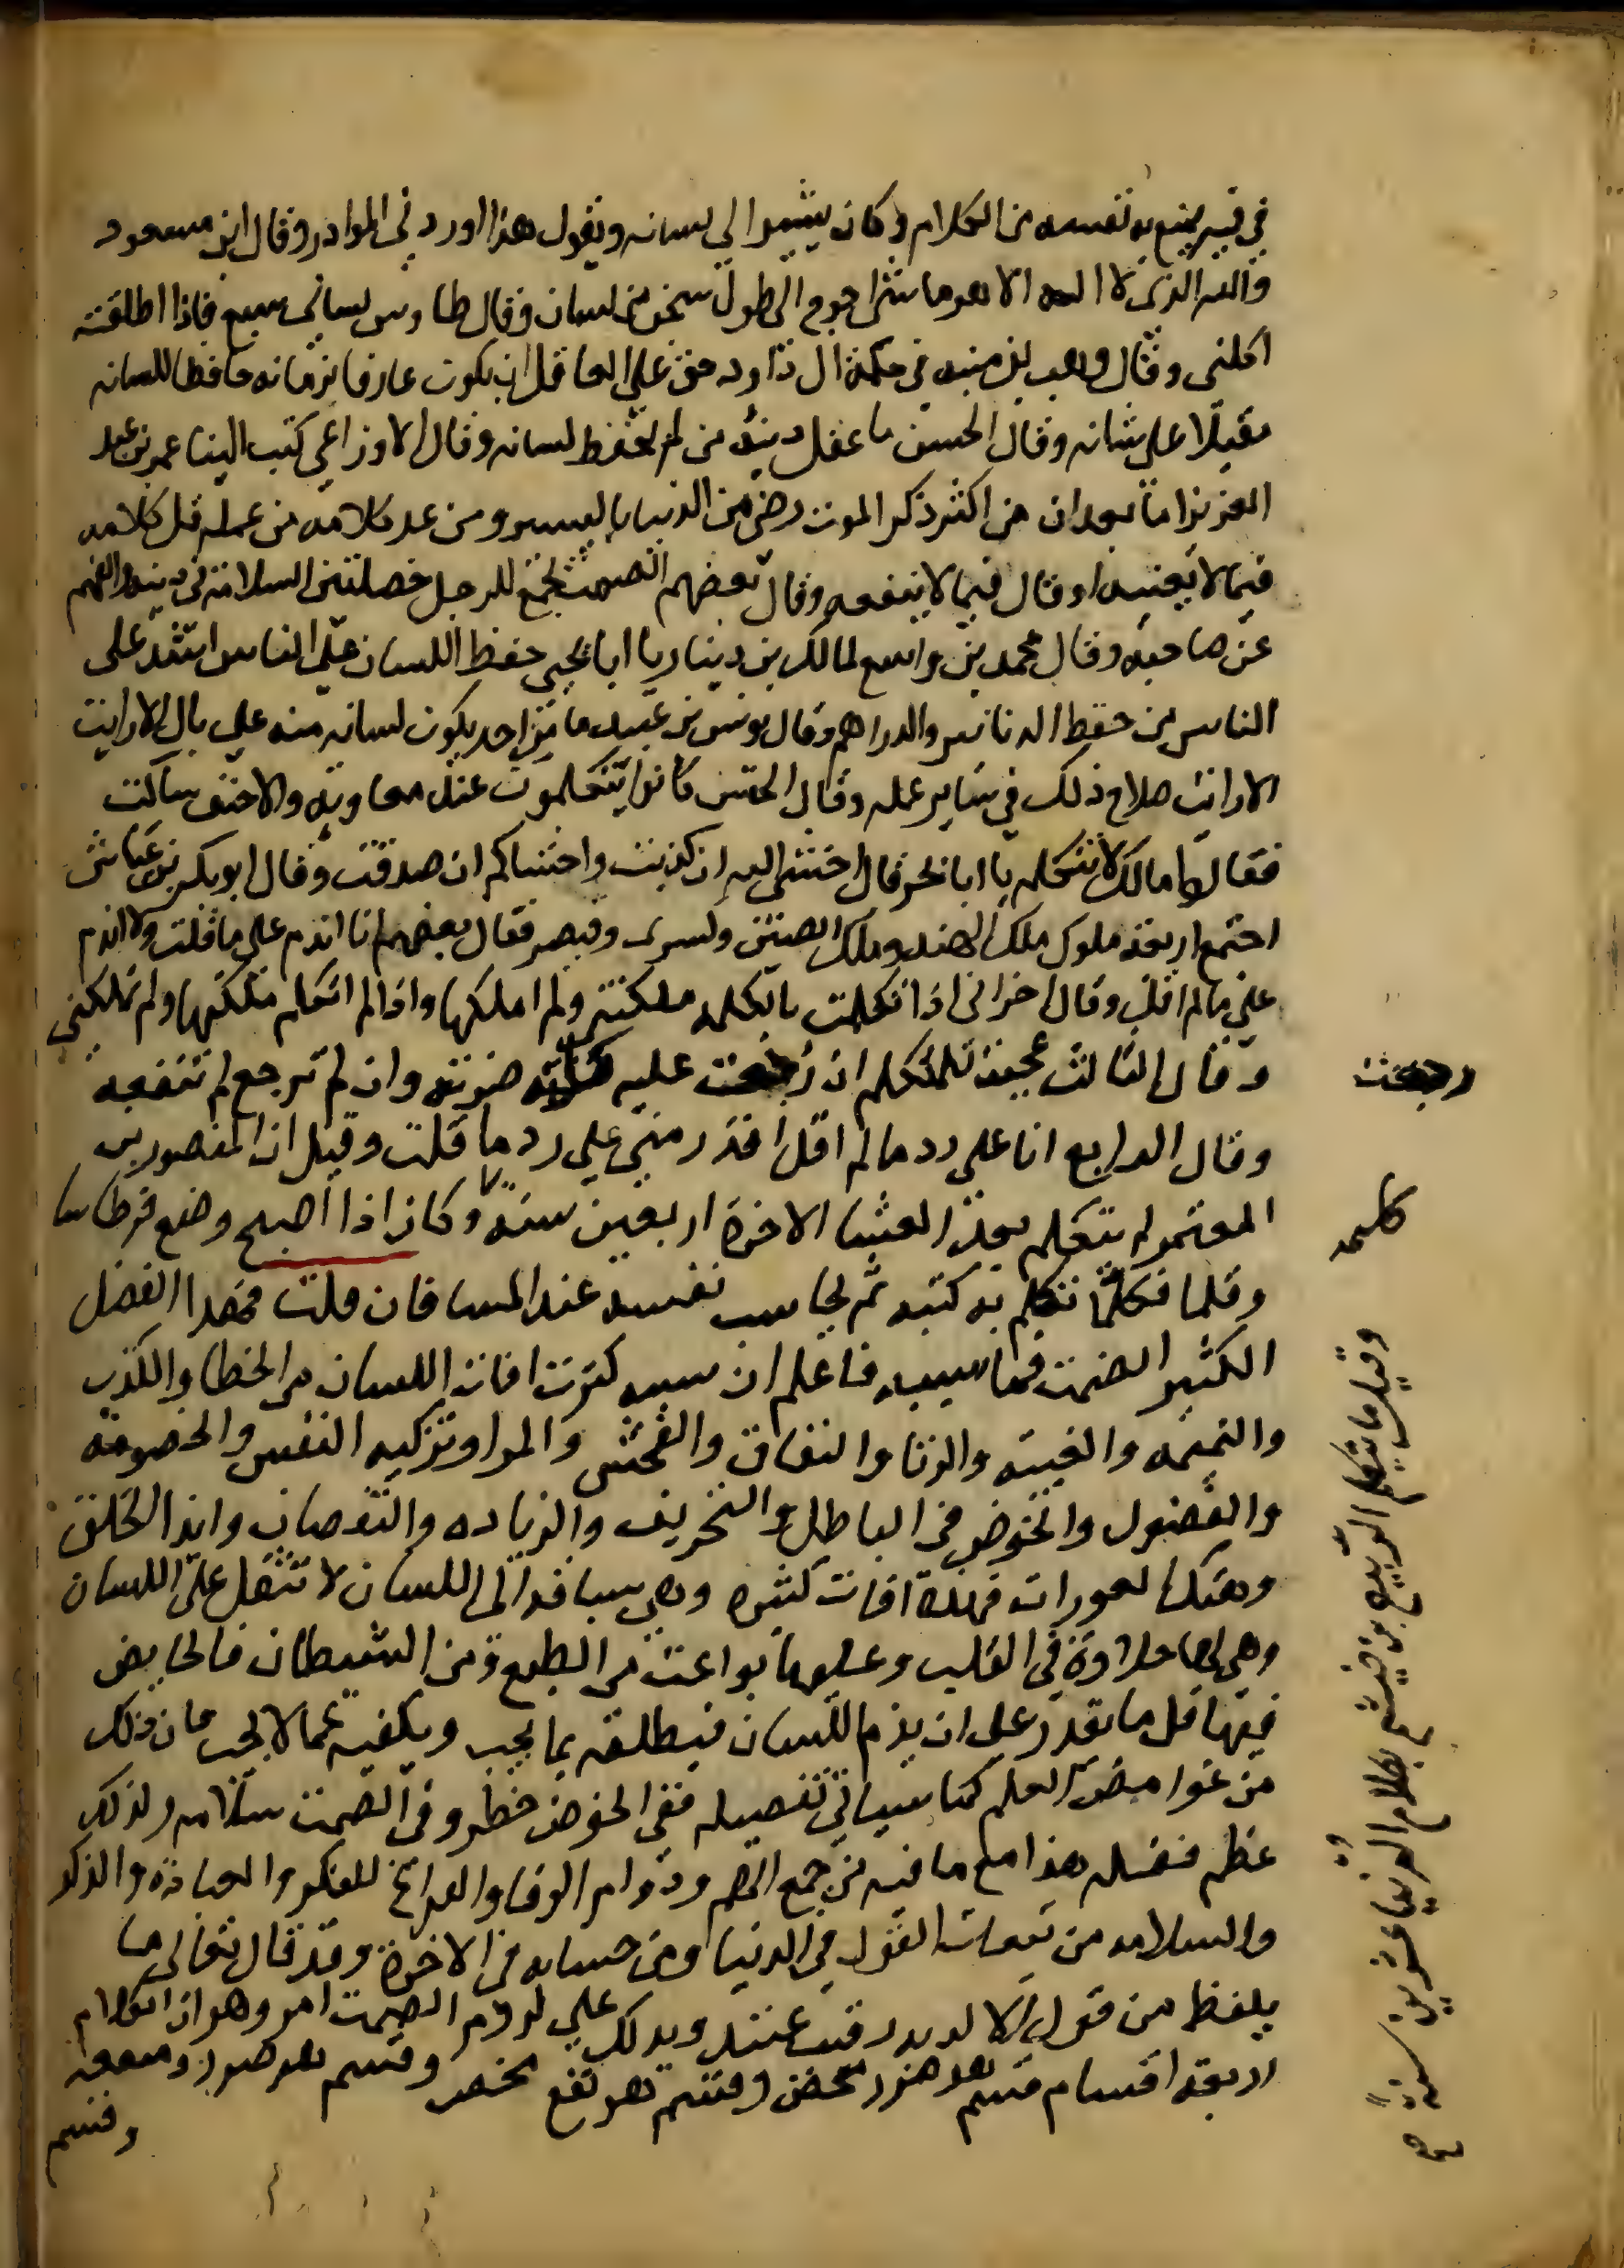 في فيه يمنع به نفسه من الكلام وكان يشير الي لسانه ويقول هذا اوردني الموارد وقال ابن مسعود
والله الذي لا اله الا هو ما شي احوج الي طول سجن من لسان وقال طاوس لساني سبع فاذا اطلقته
اكلني وقال وهب بن منبه في حكمة ال داود حق علي العاقل ان يكون عارفا بزمانه حافظا للسانه
مقبلا علي شانه وقال الحسن ما عقل دينه من لم يحفظ لسانه وقال الاوزاعي كتب الينا عمر بن عبد
العزيز اما بعد ان من اكثر ذكر الموت رضي من الدنيا باليسير ومن عد كلامه من عمله قل كلامه
فيما لا يعنيه او قال فيما لا ينفعه وقال بعضهم الصمت يجمع للرجل خصلتين السلامة في دينه والفهم
عن صاحبه وقال محمد بن واسع لمالك بن دينار يا ابا يحيي حفظ اللسان علي الناس اشد علي
الناس من حفظ الدنانير والدراهم وقال يونس بن عبيد ما من احد يكون لسانه منه علي بال الا رايت
الا رايت صلاح ذلك في ساير عمله وقال الحسن كانوا يتكلمون عند معاوية والاحنف ساكت
فقالوا مالك لا تتكلم يا ابا بحر قال اخشي الله ان كذبت واخشاكم ان صدقت وقال ابو بكر بن عياش
اجتمع اربعة ملوك ملك الهند وملك الصين وكسري وقيصر فقال بعضهم انا اندم علي ما قلت ولا اندم
علي ما لم اقل وقال اخر اني اذا تكلمت بالكلمه ملكتني ولم املكها واذا لم اتكلم ملكتها ولم تملكني
وقال الثالث عجبت للمتكلم ان رجعت عليه كلمته ضرته وان لم ترجع لم تنفعه
رجعت
وقال الرابع انا علي رد ما لم اقل اقدر مني علي رد ما قلت وقيل ان المنصور بن
المعتمر لم يتكلم بعد العشا الاخرة اربعين سنة وكان اذا اصبح وضع قرطاسا
كلمه
وقلما فكلما تكلم به كتبه ثم يحاسب نفسه عند المسا فان قلت فهذا الفضل
الكثير الصمت فما سببه فاعلم ان سببه كثرت افات اللسان من الخطا والكذب
والنميمه والغيبة والريا والنفاق والفحش والمرا وتزكيه النفس والخصومة
والفضول والخوض في الباطل والتحريف والزياده والنقصان وايذا الخلق
وهتك العورات فهذه افات كثيره وهي سباقه الي اللسان لا تثقل علي اللسان
وهي لها حلاوة في القلب وعليها بواعث من الطبع ومن الشيطان فالخايض
فيها قل ما يقدر علي ان يزم اللسان فيطلقه بما يحب ويكفيه عما لا يحب فان ذلك
من غوامض العلم كما سياتي تفصيله ففي الخوض خطر وفي الصمت سلامه ولذلك
عظم فضله هذا مع ما فيه من جمع الهم ودوام الوقار والفراغ للفكر والعبادة والذكر
والسلامه من تبعات القول في الدنيا ومن حسابه في الاخرة وقد قال تعالي ما
يلفظ من قول الا لديه رقيب عتيد ويدلك علي لزوم الصمت امر وهو ان الكلام
اربعة اقسام قسم هو ضرر محض وقسم هو نفع محض وقسم هو ضرر ومنفعة
وقسم
وقيل ما تكلم الربيع بن خيثم بكلام الدنيا عشرين سنة صح